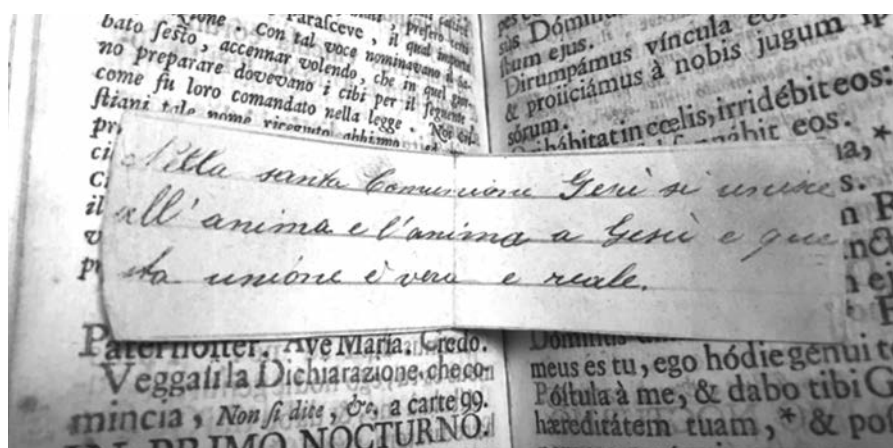 Parasceve, il qual
bato sesto, accennar volendo, che in quel gior-
no preparare dovevano i cibi per il seguente
come fu loro comandato nella legge. Noi Cri-
stiani tale nome ricevuto abbiamo
Nella santa Comunione Gesù si unisce
all'anima e l'anima a Gesù e que
sta unione è vera e reale.
Paternoster. Ave Maria. Credo.
Veggasi la Dichiarazione, che com
mincia, Non si dite, &c. a carte 99.
IN PRIMO NOCTURNO.
sus Dómin
stum ejus.
Dirumpámus víncula eórum
& proiiciámus à nobis jugum ip
sórum.
hábitat in cœlis, irridébit eos:
eos.
Dominus
meus es tu, ego hódie génui te
Póstula à me, & dabo tibi G
hæreditátem tuam, * & po